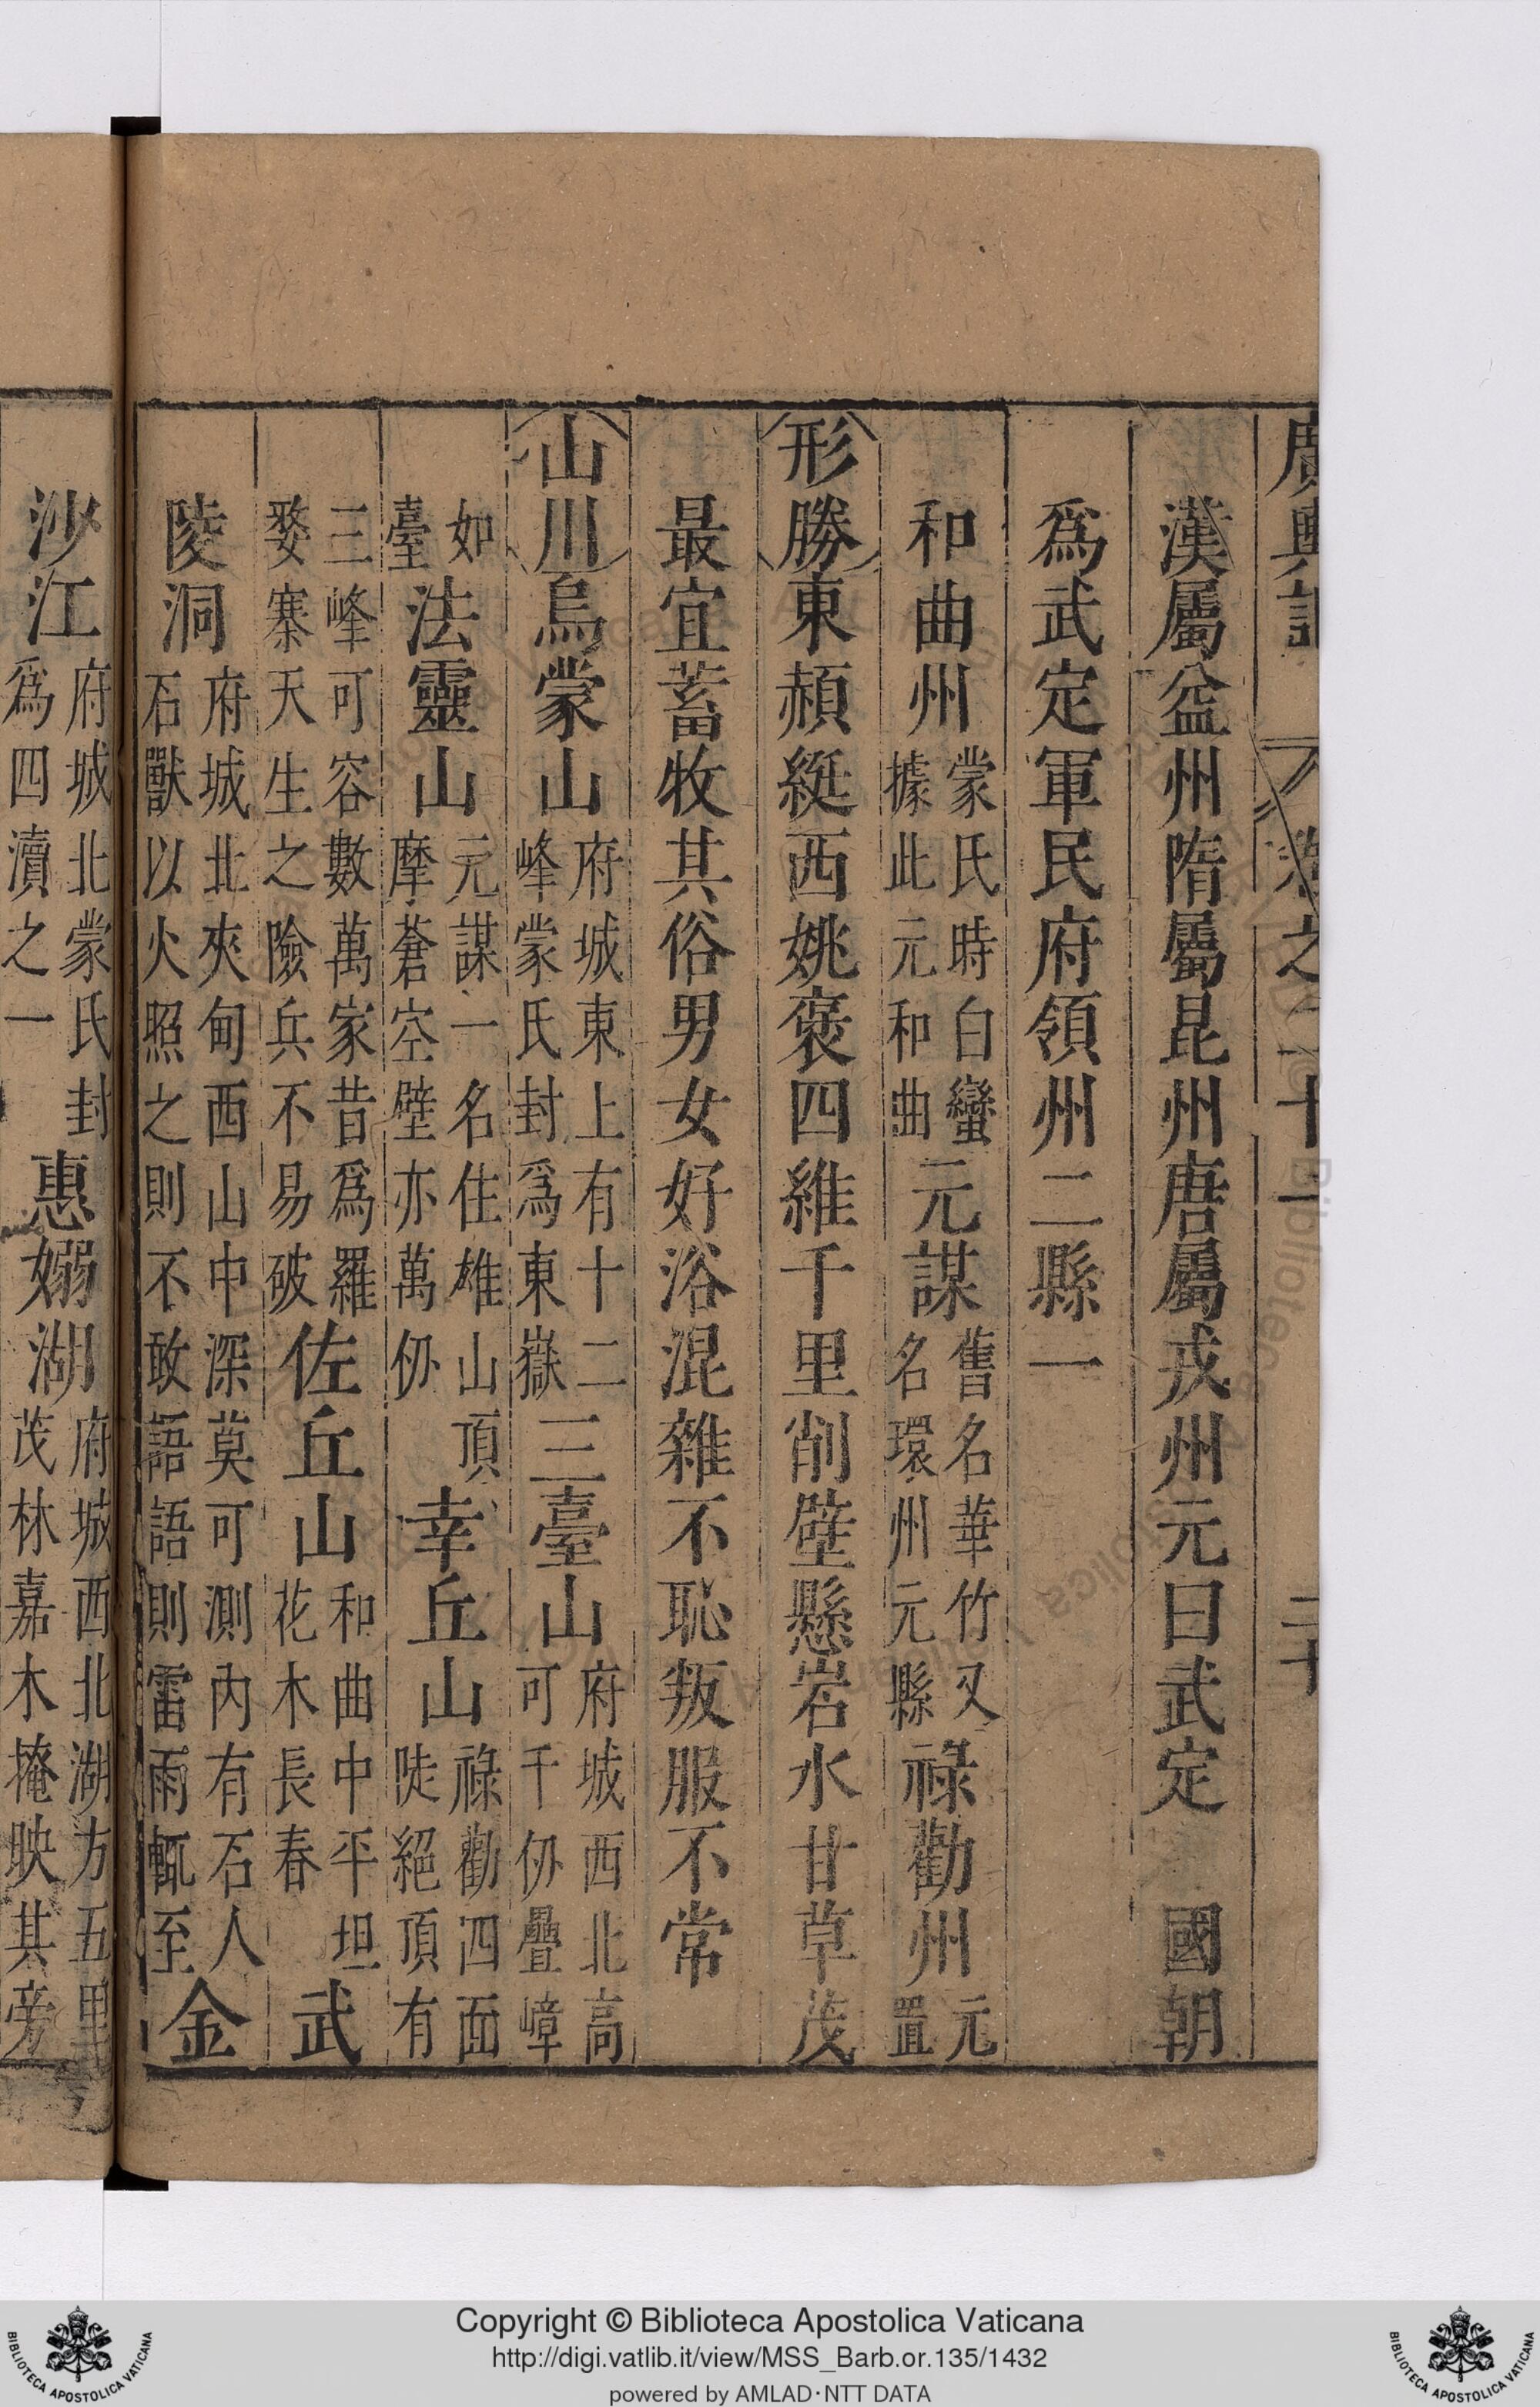 廣輿記 卷之二十一 二十
漢屬益州隋屬昆州唐屬戎州元曰武定 國朝
爲武定軍民府領州二縣一
和曲州蒙氏時白蠻據此元和曲元謀舊名華竹又名環州元縣祿勸州元置
形勝東頳綖西姚褒四維千里削壁懸岩水甘草茂
最宜蓄牧其俗男女好浴混雜不恥叛服不常
山川烏蒙山府城東上有十二峰蒙氏封爲東嶽三臺山府城西北高可千仞疊嶂
如臺法靈山元謀一名住雄山頂摩蒼空壁亦萬仞幸丘山祿勸四面陡絕頂有
三峰可容數萬家昔爲羅婺寨天生之險兵不易破佐丘山和曲中平坦花木長春武
陵洞府城北夾甸西山中深莫可測內有石人石獸以火照之則不敢語語則雷雨輒至金
沙江府城北蒙氏封爲四瀆之一惠嫋湖府城西北湖方五里茂林嘉木掩映其旁
Copyright © Biblioteca Apostolica Vaticana
http://digi.vatlib.it/view/MSS_Barb.or.135/1432
powered by AMLAD·NTT DATA
BIBLIOTECA APOSTOLICA VATICANA
BIBLIOTECA APOSTOLICA VATICANA